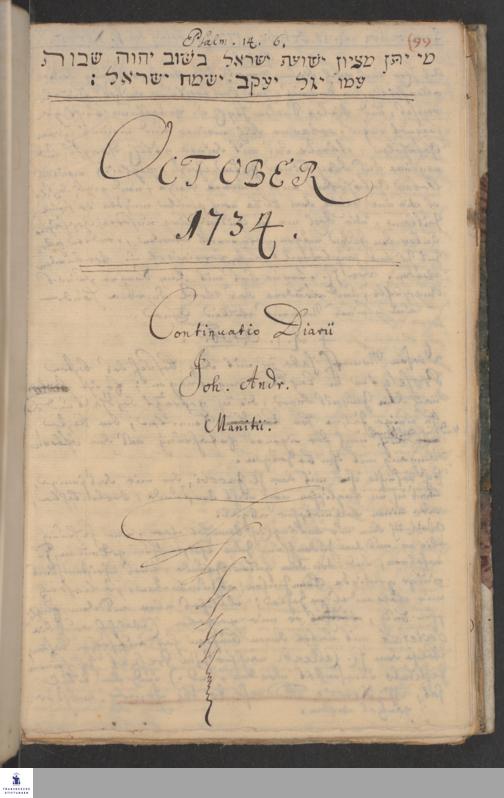 Psalm. 14. 6.
(99
מי יתן מציון ישועת ישראל בשוב יהוה שבות
עמו יגל יעקב ישמח ישראל :
OCTOBER
1734.
Continuatio Diarii
Joh. Andr.
Manitii.
FRANCKESCHE
STIFTUNGEN